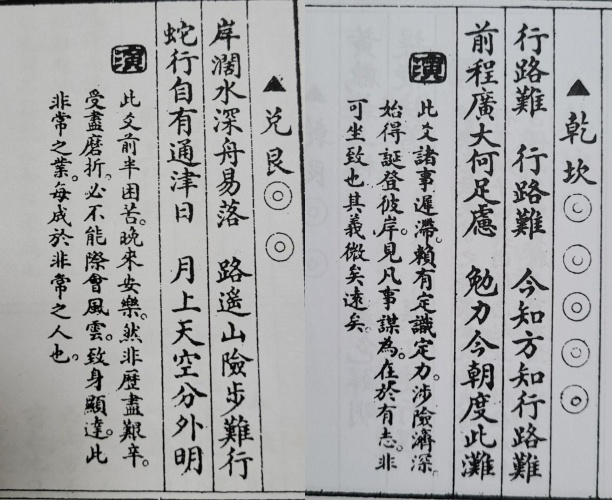 ▲乾坎◎◎◎◎◎
行路難 行路難 今知方知行路難
前程廣大何足慮 勉力今朝度此灘
演
此爻諸事遲滯。賴有定識定力。涉險濟深。
始得誕登彼岸。見凡事謀為。在於有志。非
可坐致也其義微矣遠矣。
▲兌艮◎◎
岸濶水深舟易落 路遙山險步難行
蛇行自有通津日 月上天空分外明
演
此爻前半困苦。晚來安樂。然非歷盡艱辛。
受盡磨折。必不能際會風雲。致身顯達。此
非常之業。每成於非常之人也。